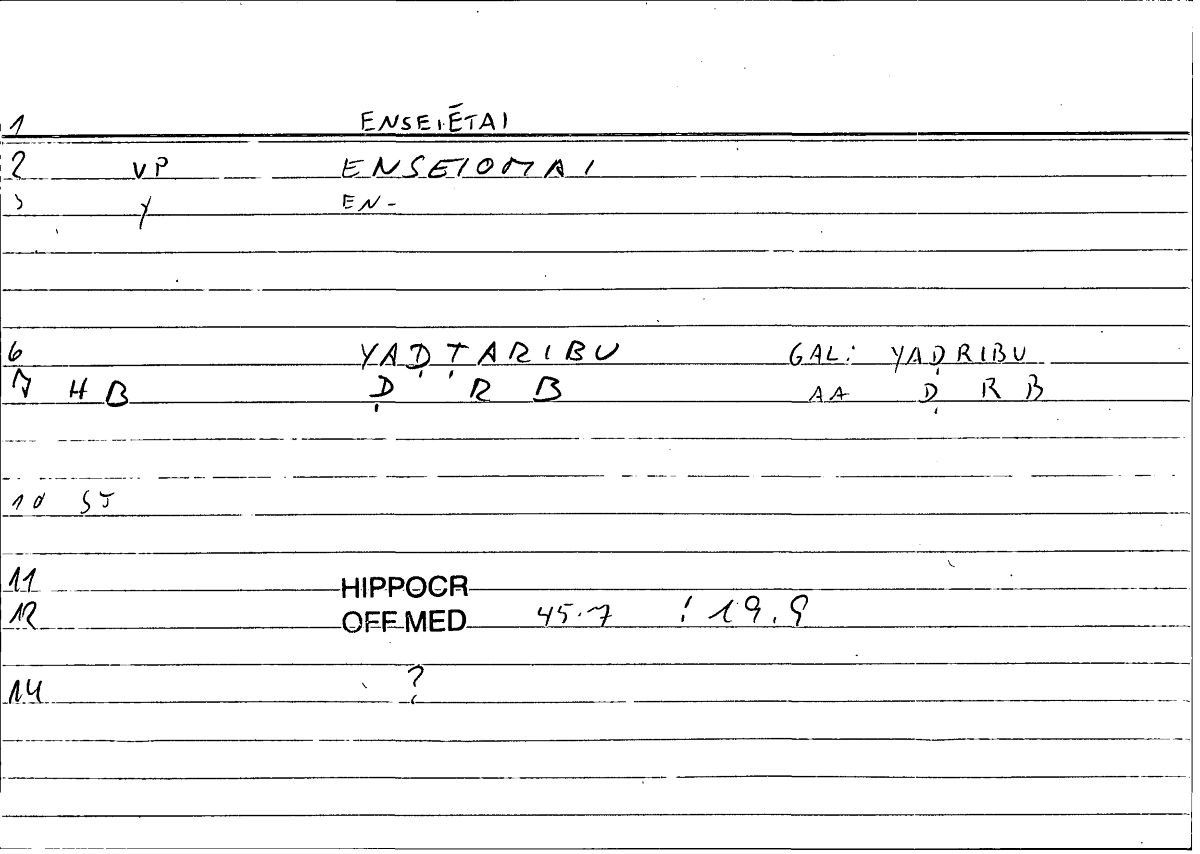 1 ENSEIĒTAI
2 VP ENSEIOMAI
3 Y EN-
6 YAḌṬARIBU GAL: YAḌRIBU
7 HB Ḍ R B AA Ḍ R B
10 SJ
11 HIPPOCR
12 OFF.MED 45.7 : 19.9
14 ?